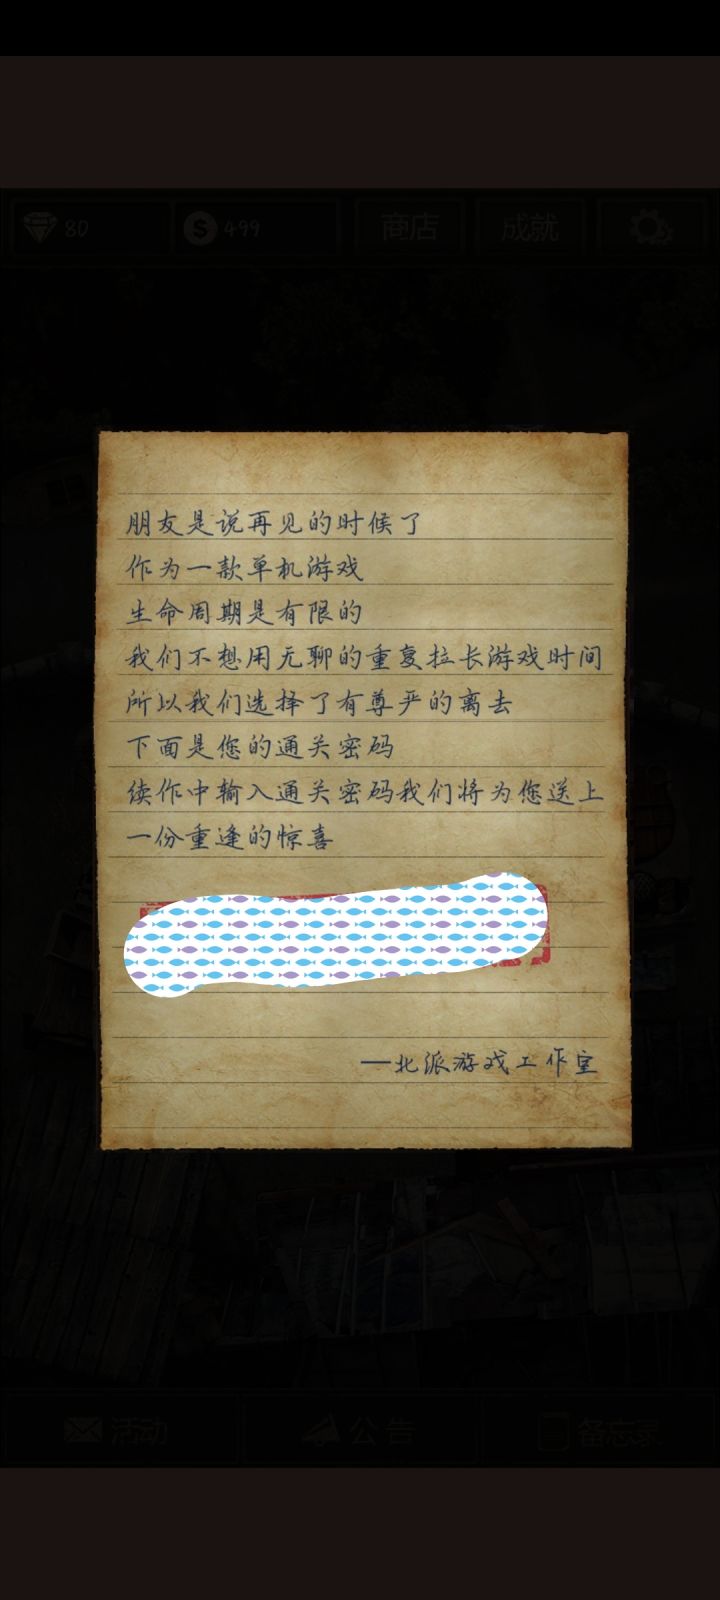 80
499
商店
成就
朋友是说再见的时候了
作为一款单机游戏
生命周期是有限的
我们不想用无聊的重复拉长游戏时间
所以我们选择了有尊严的离去
下面是您的通关密码
续作中输入通关密码我们将为您送上
一份重逢的惊喜
—北派游戏工作室
活动
公告
备忘录